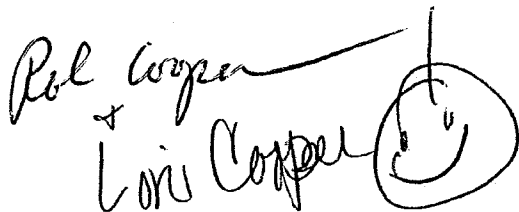 Rob Cooper
+
Lori Cooper